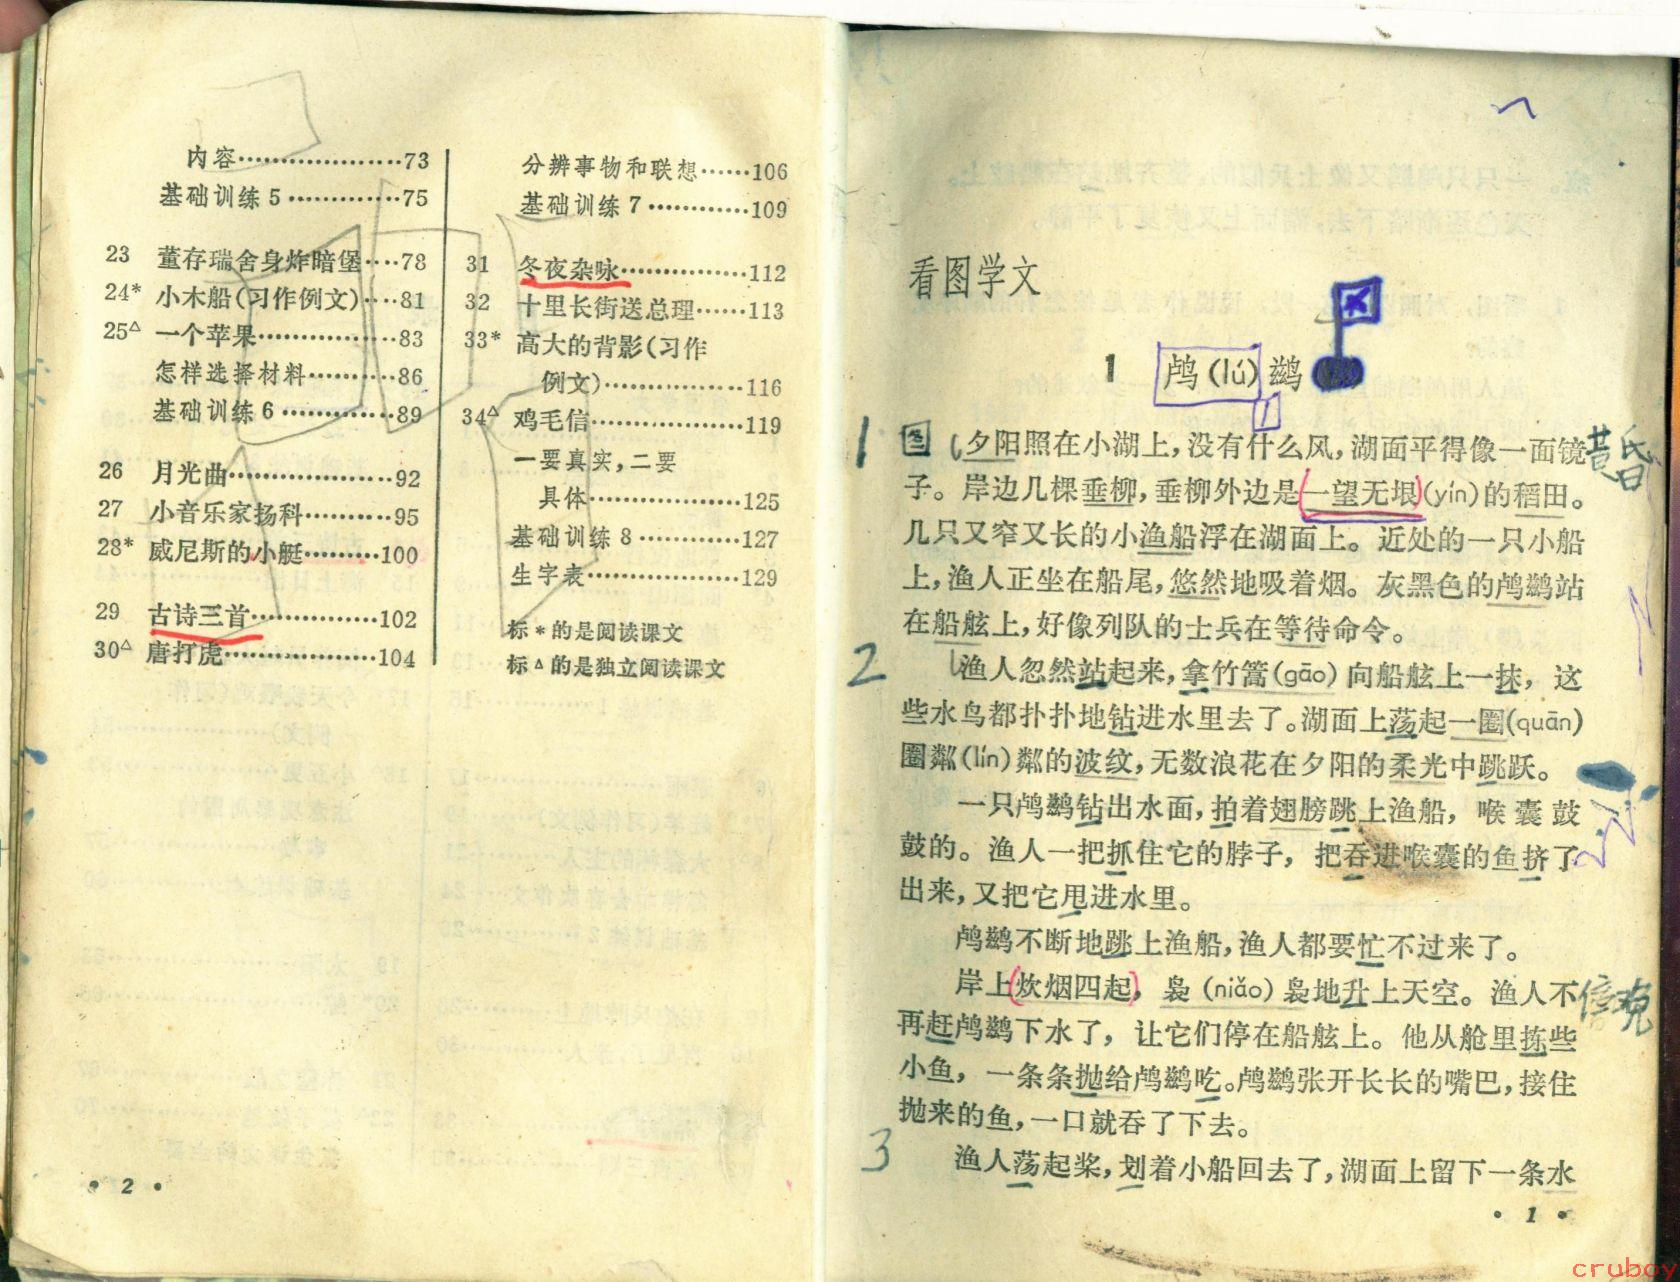 内容··················73
基础训练 5 ··············75
23 董存瑞舍身炸暗堡····78
24* 小木船(习作例文)····81
25△ 一个苹果··············83
怎样选择材料··········86
基础训练 6 ·············89
26 月光曲················92
27 小音乐家扬科··········95
28* 威尼斯的小艇·········100
29 古诗三首·············102
30△ 唐打虎················104
· 2 ·
分辨事物和联想······106
基础训练 7 ············109
31 冬夜杂咏·············112
32 十里长街送总理······113
33* 高大的背影(习作
例文)···············116
34△ 鸡毛信···············119
一要真实,二要
具体···············125
基础训练 8 ············127
生字表················129
标 * 的是阅读课文
标 △ 的是独立阅读课文
看图学文
1 鸬(lú)鹚
1 图 夕阳照在小湖上,没有什么风,湖面平得像一面镜
黄昏
子。岸边几棵垂柳,垂柳外边是一望无垠(yín)的稻田。
几只又窄又长的小渔船浮在湖面上。近处的一只小船
上,渔人正坐在船尾,悠然地吸着烟。灰黑色的鸬鹚站
在船舷上,好像列队的士兵在等待命令。
2 渔人忽然站起来,拿竹篙(gāo)向船舷上一抹,这
些水鸟都扑扑地钻进水里去了。湖面上荡起一圈(quān)
圈粼(lín)粼的波纹,无数浪花在夕阳的柔光中跳跃。
一只鸬鹚钻出水面,拍着翅膀跳上渔船,喉囊鼓
鼓的。渔人一把抓住它的脖子,把吞进喉囊的鱼挤了
出来,又把它甩进水里。
鸬鹚不断地跳上渔船,渔人都要忙不过来了。
岸上炊烟四起,袅(niǎo)袅地升上天空。渔人不
再赶鸬鹚下水了,让它们停在船舷上。他从舱里拣些
小鱼,一条条抛给鸬鹚吃。鸬鹚张开长长的嘴巴,接住
抛来的鱼,一口就吞了下去。
3 渔人荡起桨,划着小船回去了,湖面上留下一条水
· 1 ·
cruboy